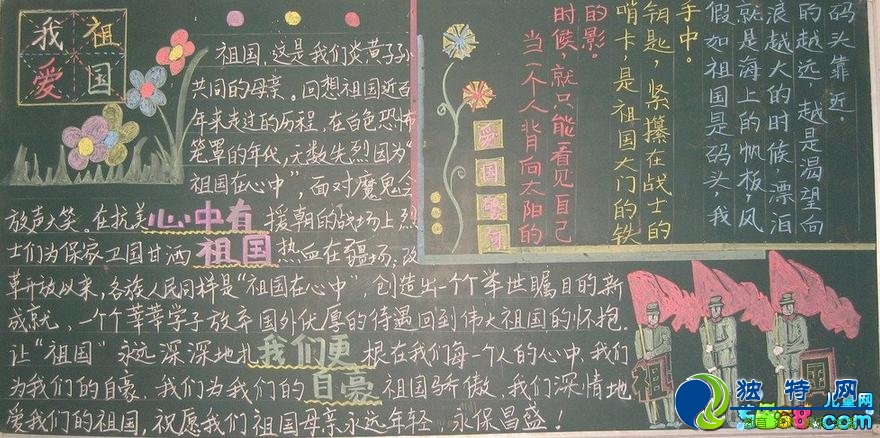 我爱
祖国
祖国,这是我们炎黄子孙
共同的母亲。回想祖国近百
年来走过的历程,在白色恐怖
笼罩的年代,无数先烈因为“
祖国在心中”,面对魔鬼会
放声大笑。在抗美心中有援朝的战场上烈
士们为保家卫国甘洒祖国热血在疆场;改
革开放以来,各族人民同样是“祖国在心中”,创造出一个个举世瞩目的新
成就,一个个莘莘学子放弃国外优厚的待遇回到伟大祖国的怀抱.
让“祖国”永远深深地扎我们更根在我们每一个人的心中,我们
为我们的自豪,我们为我们的自豪祖国骄傲,我们深情地
爱我们的祖国,祝愿我们祖国母亲永远年轻,永保昌盛.
爱国警句
当一个人背向太阳的
时候,就只能看见自己
的影。
哨卡,是祖国大门的铁
钥匙,紧攥在战士的
手中。
假如祖国是码头,我
就是海上的帆板,风
浪越大的时候,漂泊
的越远,越是渴望向
码头靠近。
祖
国
独特网
儿童网
.com